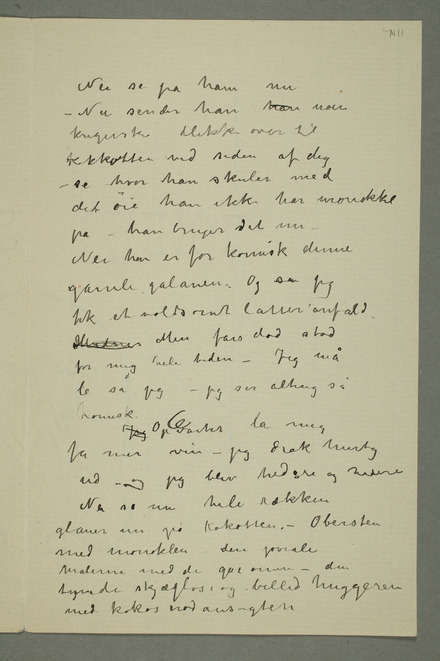 N11
Nei se på ham nu
– Nu sender han han nåen
krigerske blikke over til
kokkotten ved siden af dig
– se hvor han skuler med
det öie han ikke har monokkel
på – han bruger det nu –
Nei han er for komisk denne
gamle galanen. Og så jeg
fik et voldsomt latteranfald.
Men fars død stod
for mig hele tiden – Jeg må
le sa jeg – jeg ser alting så
komisk.
Jeg Opvarter la mig
få mer vin – jeg drak hurtig
ud – og jeg blev hedere og hedere
Nå se nu hele rækken
glaner nu på kokotten. – Obersten
med monoklen den joviale
maleren med de øinene – den
tynde skjægløse og billedhuggeren
med kokosnødansigten